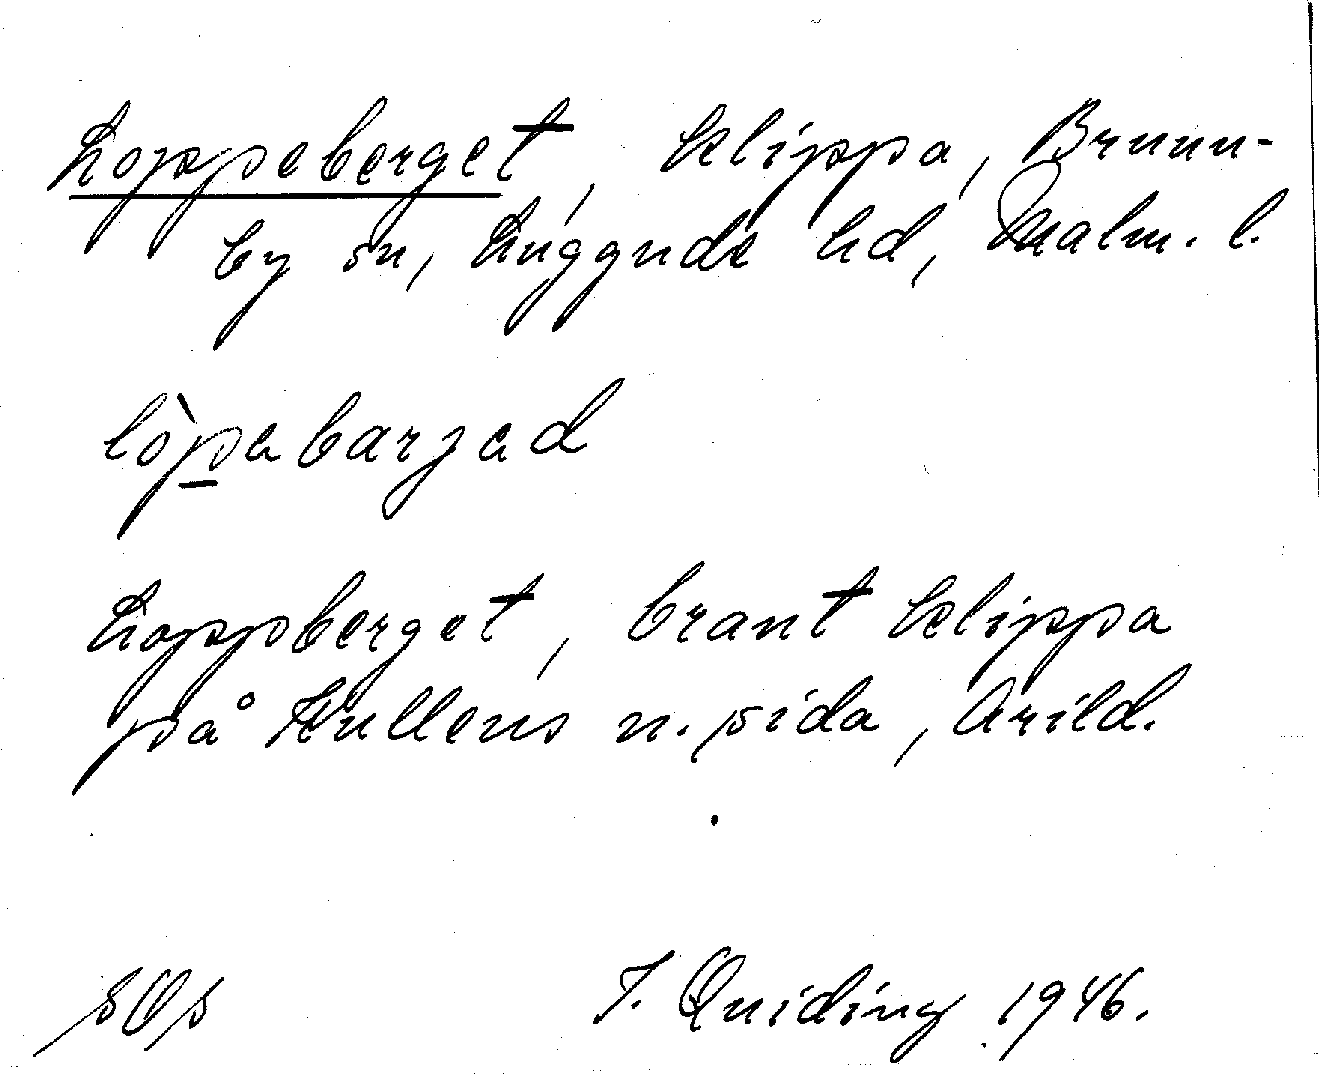 Loppeberget, klippa, Brunn-
by sn, Luggude hd, Malm. l.
lòpebarjed
Loppberget, brant klippa
på Kullens n. sida, Arild.
T. Quiding 1946.